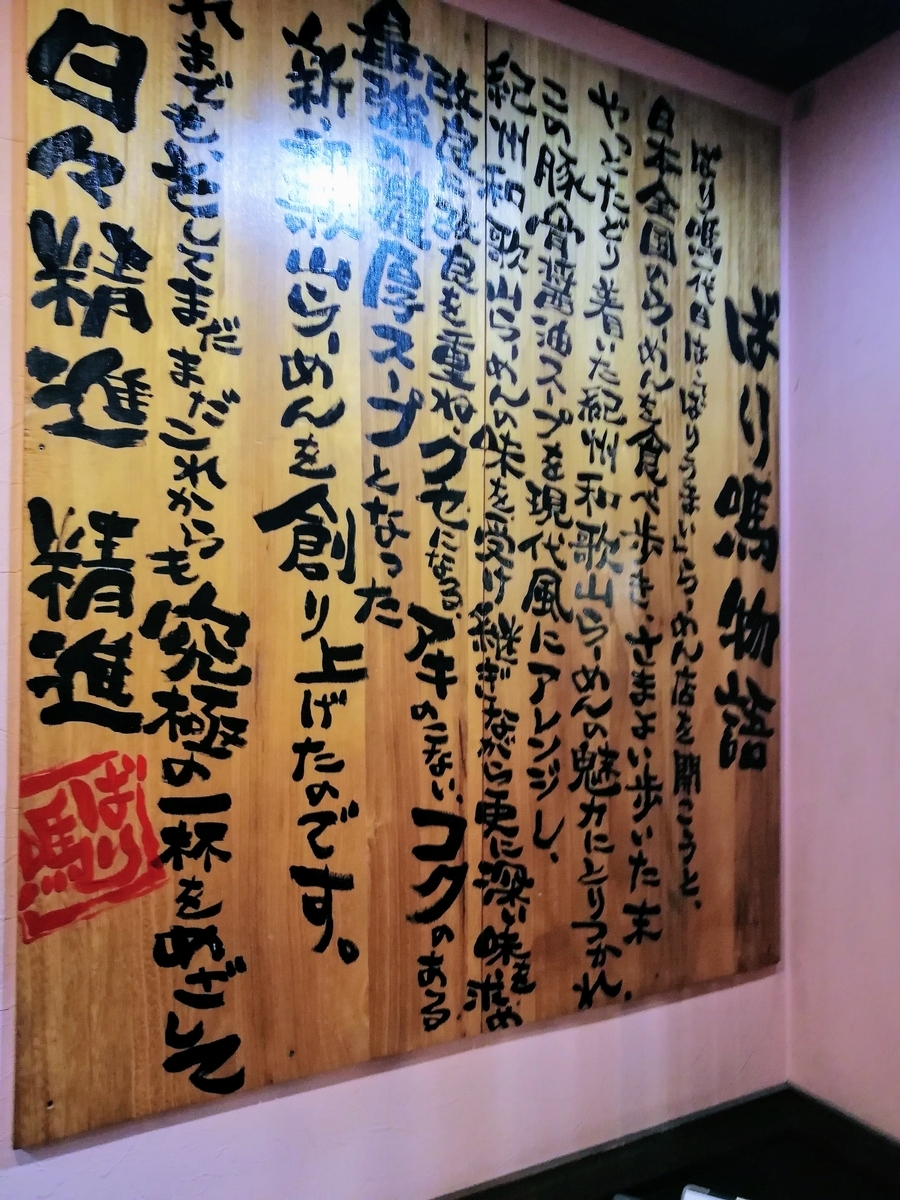 ばり嗎物語
ばり嗎代目は「ばりうまい」らーめん店を開こうと、
日本全国のらーめんを食べ歩き、さまよい歩いた末
やっとたどり着いた紀州和歌山らーめんの魅力にとりつかれ、
この豚骨醤油スープを現代風にアレンジし、
紀州和歌山らーめんの味を受け継ぎながら更に深い味を求め
改良に改良を重ね、クセになる、アキのこない、コクのある
最強の濃厚スープとなった
新・和歌山らーめんを創り上げたのです。
れまでも、そしてまだまだこれからも究極の一杯をめざして
日々精進 精進
ばり嗎